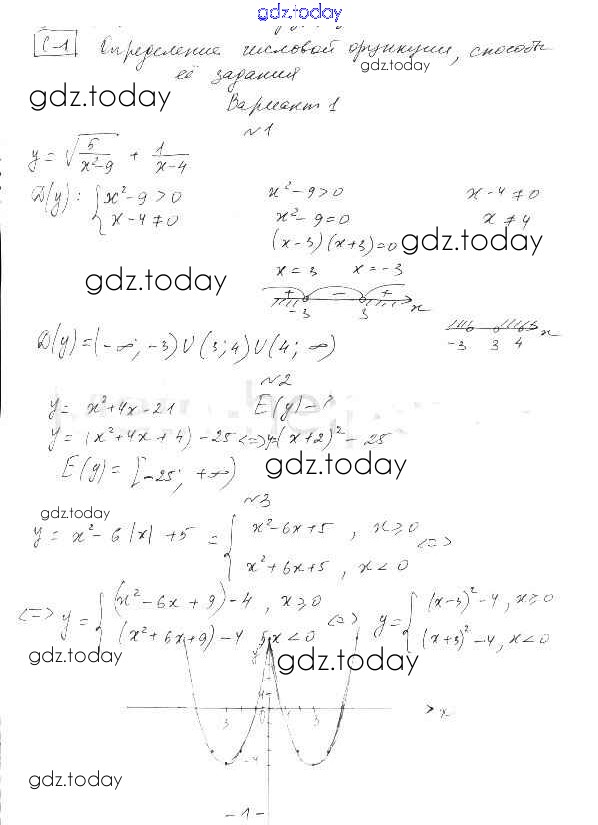 gdz.today
С-1 Определение числовой функции, способы
gdz.today
её задания
gdz.today
Вариант 1
№1
y = √(5/(x²-9)) + 1/(x-4)
D(y): { x²-9>0
x-4≠0
x²-9>0
x²-9=0
(x-3)(x+3)=0
x=3 x=-3
x-4≠0
x≠4
gdz.today
gdz.today
+ - +
-3 3 x
-3 3 4 x
D(y)=(-∞;-3)∪(3;4)∪(4;∞)
№2
y= x²+4x-21 E(y)-?
y= (x²+4x+4)-25 <=> y=(x+2)²-25
E(y)= [-25; +∞)
gdz.today
gdz.today
№3
y= x²-6|x|+5 = { x²-6x+5, x≥0
x²+6x+5, x<0 <=>
<=> y= { (x²-6x+9)-4, x≥0
(x²+6x+9)-4, x<0
<=> y= { (x-3)²-4, x≥0
(x+3)²-4, x<0
gdz.today
gdz.today
y 5
3 0 3 x
-4
gdz.today
-1-